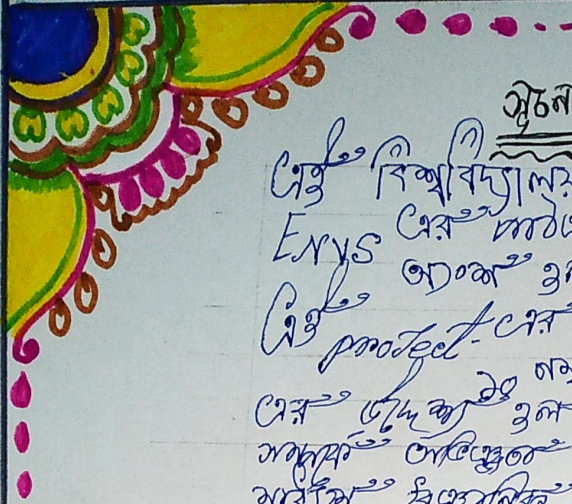 সূচন
এই বিশ্ববিদ্যালয়
ENVS এর পাঠ্য
অংশ হল
এই project- এর
এর উদ্দেশ্য হল
সম্পর্কে অভিজ্ঞতা